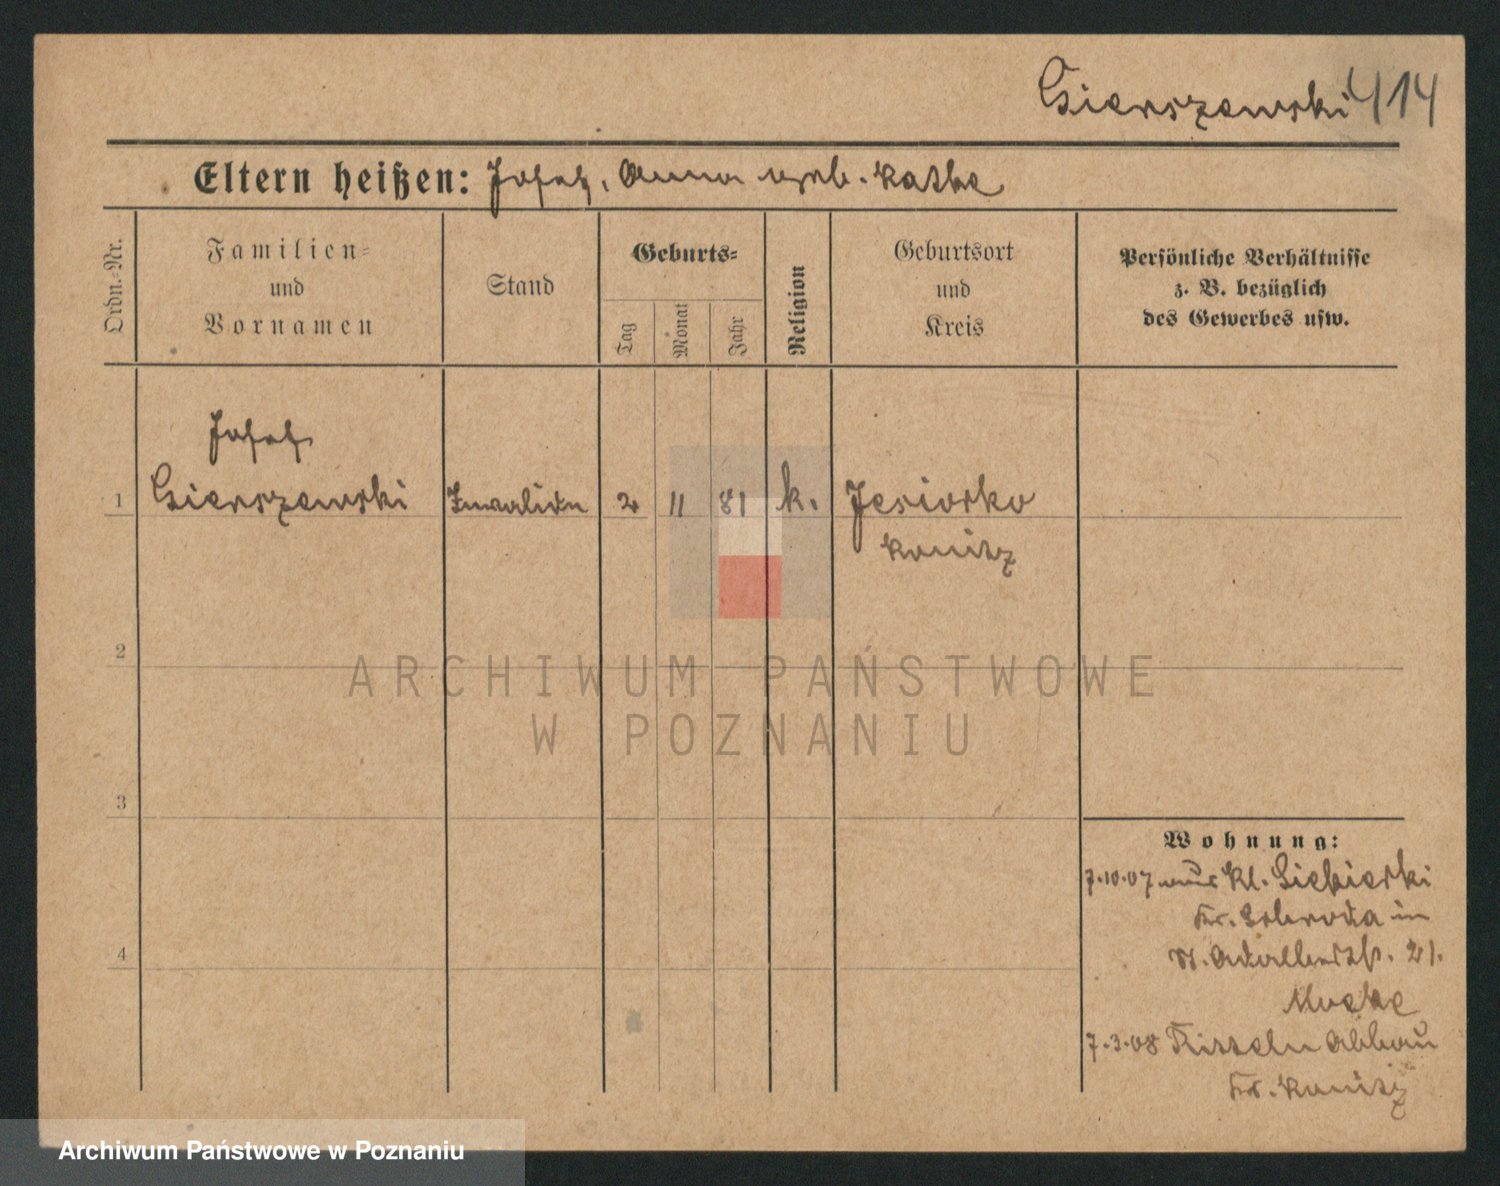 Gierszewski 414
Eltern heißen: Josef, Anna geb. Kathe
Ordn.-Nr.
Familien-
und
Vornamen
Stand
Geburts-
Tag
Monat
Jahr
Religion
Geburtsort
und
Kreis
Persönliche Verhältnisse
z. B. bezüglich
des Gewerbes usw.
Josef
1 Gierszewski Invalide 2 11 81 k. Jesiorko
Konitz
2
3
4
ARCHIWUM PAŃSTWOWE
W POZNANIU
Wohnung:
7.10.07 aus Kl. Siekierki
Kr. Schroda in
St. Adalbertstr. 21.
7.3.08 Abbau
Kr. Konitz
Archiwum Państwowe w Poznaniu